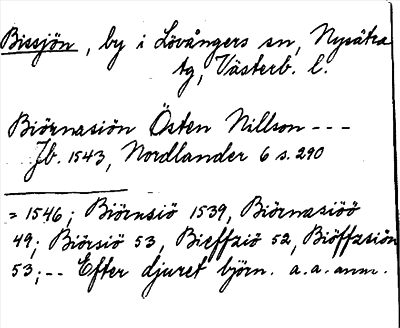 Bissjön, by i Lövångers sn, Nysätra
tg, Västerb. l.
Biörnasiön Östen Nillson - - -
Jb. 1543, Nordlander 6 s. 290
= 1546; Biörnsiö 1539, Biörnasiöö
49; Biörsiö 53, Bieffziö 52, Biöffzsiön
53; -- Efter djuret björn. a. a. anm.